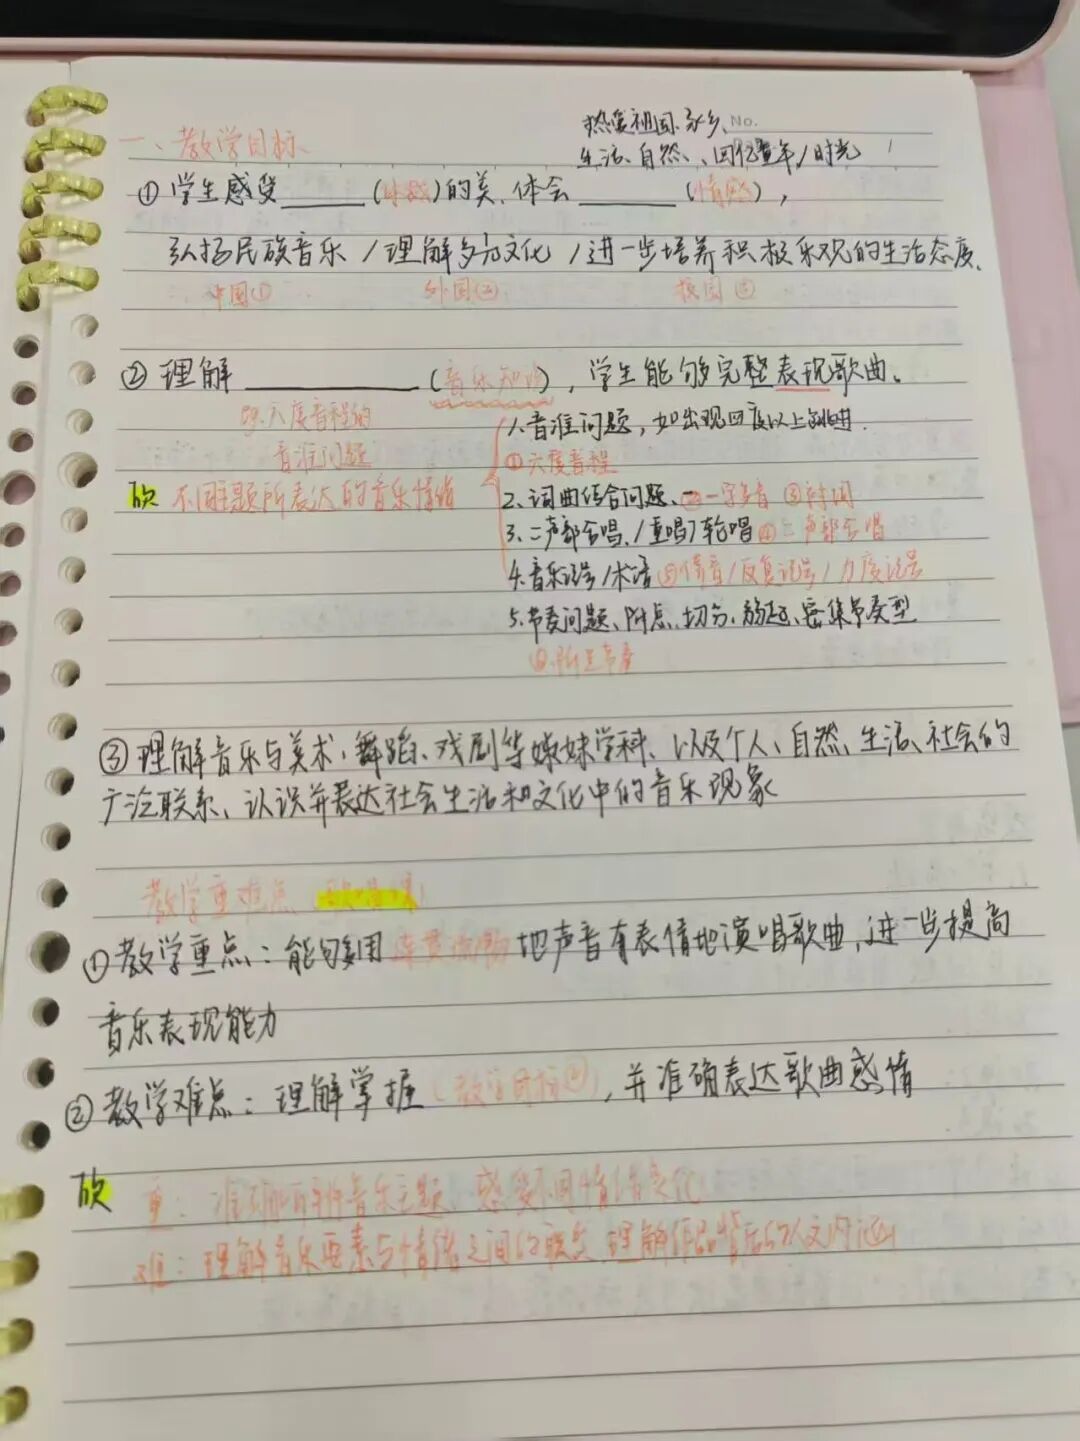 热爱祖国、家乡、No.
一、教学目标、
生活、自然、、回忆童年/时光
①学生感受______(体裁)的美、体会______(情感),
弘扬民族音乐/理解多元文化/进一步培养积极乐观的生活态度、
中国① 外国② 校园③
②理解__________(音乐知识),学生能够完整表现歌曲。
1.音准问题,如出现四度以上跳进.
八度音程的
音准问题
①六度音程
欣 不同主题所表达的音乐情绪
2、词曲结合问题、②一字多音 ③时间
3、二声部合唱、/重唱/轮唱④二声部合唱
4.音乐记号/术语⑤倚音/反复记号/力度记号
5.节奏问题、附点、切分、弱起、密集节奏型
⑥.附点节奏
③理解音乐与美术、舞蹈、戏剧等姊妹学科、以及个人、自然、生活、社会的
广泛联系、认识并表达社会生活和文化中的音乐现象
教学重难点(歌唱课)
①教学重点:能够用连贯流畅地声音有表情地演唱歌曲,进一步提高
音乐表现能力
②教学难点:理解掌握(教学目标②),并准确表达歌曲感情
欣 重:准确听辨音乐主题、感受不同情绪变化
难:理解音乐要素与情绪之间的联系,理解作品背后的人文内涵